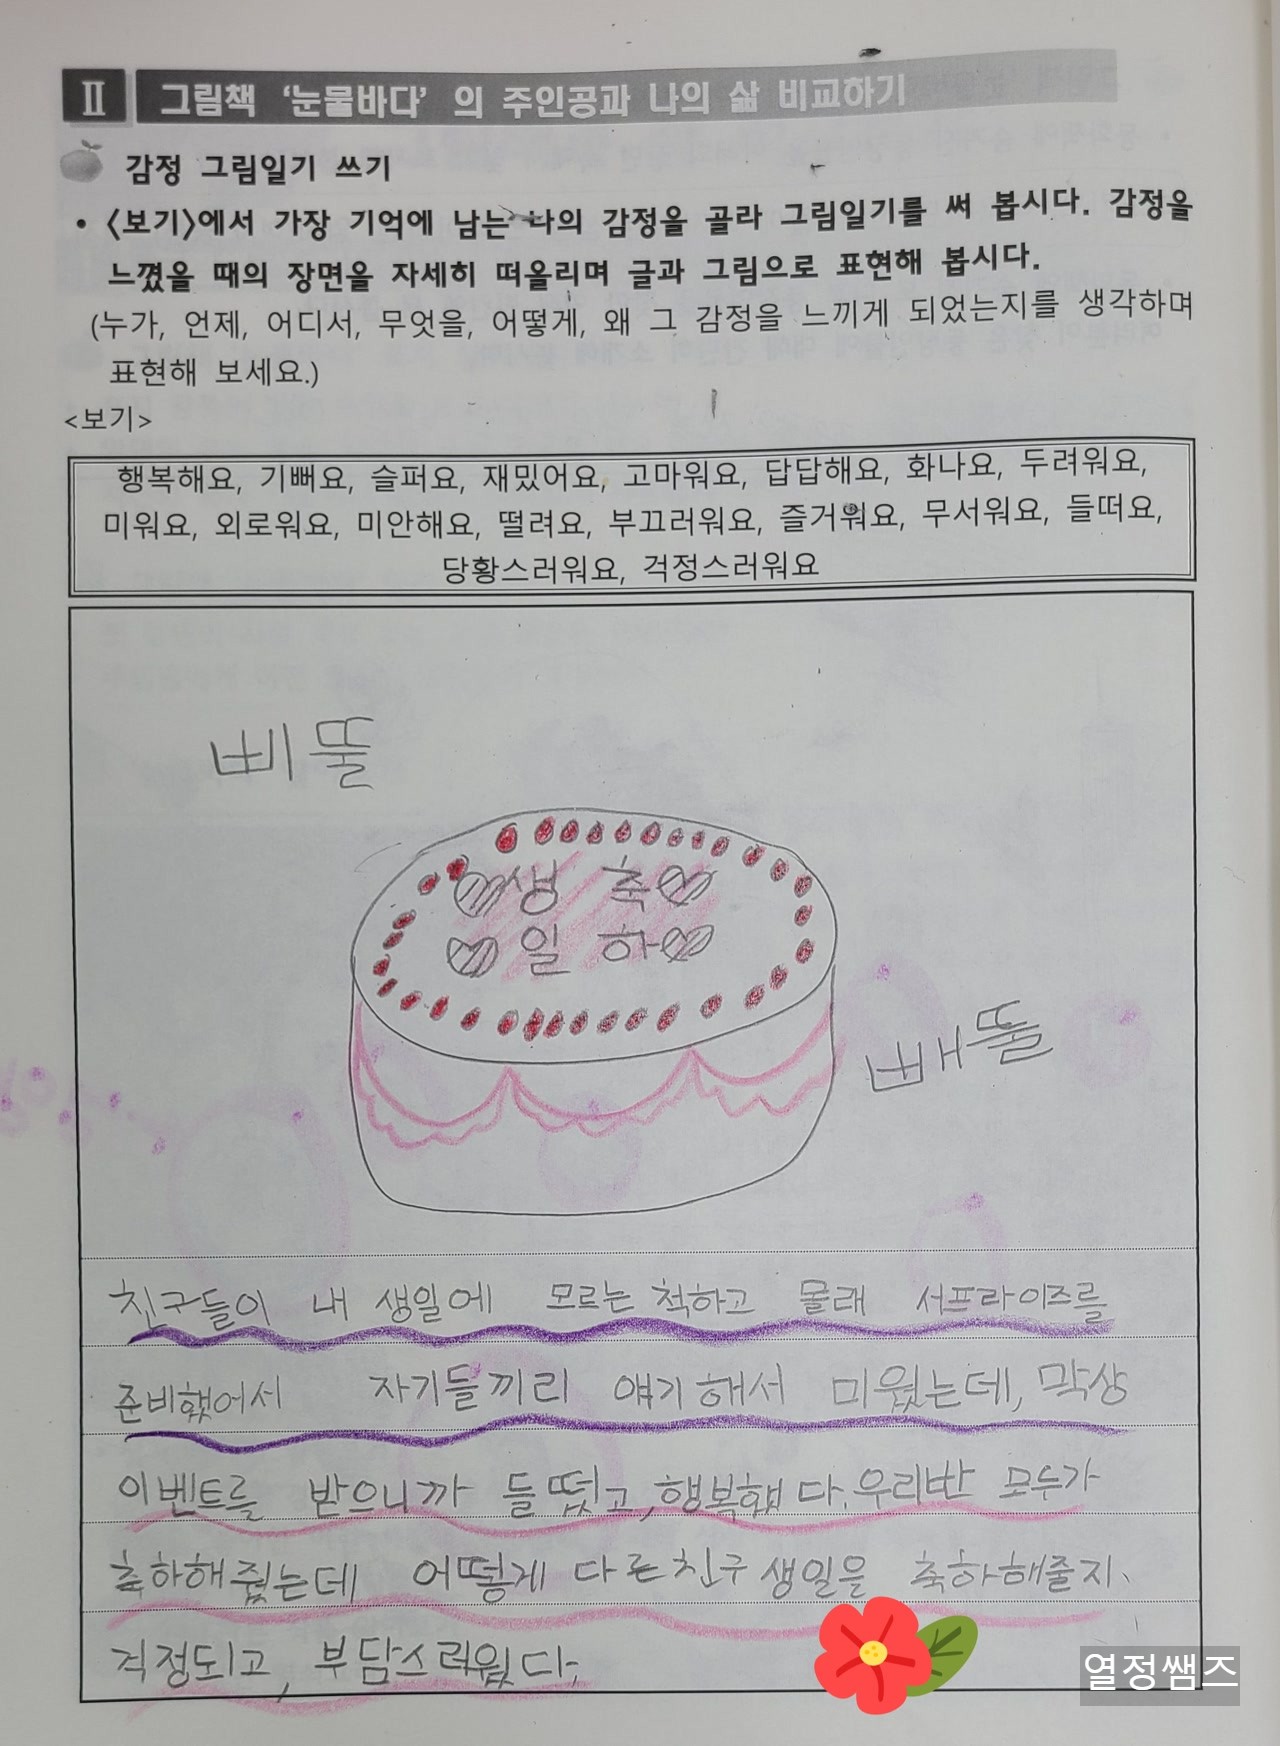 Ⅱ 그림책 ‘눈물바다’ 의 주인공과 나의 삶 비교하기
감정 그림일기 쓰기
• <보기>에서 가장 기억에 남는 나의 감정을 골라 그림일기를 써 봅시다. 감정을
느꼈을 때의 장면을 자세히 떠올리며 글과 그림으로 표현해 봅시다.
(누가, 언제, 어디서, 무엇을, 어떻게, 왜 그 감정을 느끼게 되었는지를 생각하며
표현해 보세요.)
<보기>
행복해요, 기뻐요, 슬퍼요, 재밌어요, 고마워요, 답답해요, 화나요, 두려워요,
미워요, 외로워요, 미안해요, 떨려요, 부끄러워요, 즐거워요, 무서워요, 들떠요,
당황스러워요, 걱정스러워요
삐뚤
생 축
일 하
빼뚤
친구들이 내 생일에 모르는 척하고 몰래 서프라이즈를
준비했어서 자기들끼리 얘기해서 미웠는데, 막상
이벤트를 받으니까 들떴고, 행복했다. 우리반 모두가
축하해줬는데 어떻게 다른친구 생일을 축하해줄지
걱정되고, 부담스러웠다.
열정쌤즈